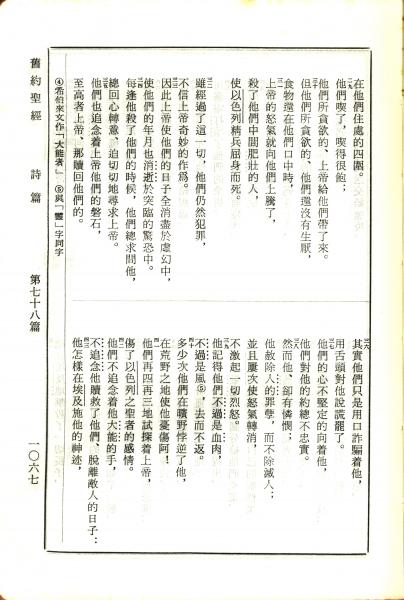 在他們住處的四圍。
他們喫了,喫得很飽;
他們所貪欲的、上帝給他們帶了來。
但他們所貪欲的、他們還沒有生厭,
食物還在他們口中時,
上帝的怒氣就向他們上騰了,
殺了他們中間肥壯的人,
使以色列精兵屈身而死。
雖經過了這一切,他們仍然犯罪,
不信上帝奇妙的作爲。
因此上帝使他們的日子全消盡於虛幻中,
使他們的年月也消逝於突臨的驚恐中。
每逢他殺了他們的時候,他們總求問他,
總回心轉意、迫切切地尋求上帝。
他們也追念着上帝他們的磐石,
至高者上帝、那贖回他們的。
其實他們只是用口詐騙着他,
用舌頭對他說謊罷了。
他們的心不堅定的向着他,
他們對他的約總不忠實。
然而他、卻有憐憫;
他赦除人的罪孽,而不除滅人;
並且屢次使怒氣轉消,
不激起一切烈怒。
他記得他們不過是血肉,
不過是風⑤,去而不返。
多少次他們在曠野悖逆了他,
在荒野之地使他憂傷阿!
他們再四再三地試探着上帝,
傷了以色列之聖者的感情。
他們不追念着他大能的手,
不追念他贖救了他們、脫離敵人的日子:
他怎樣在埃及施他的神迹,
④希伯來文作「大能者」 ⑤與「靈」字同字
舊約聖經 詩篇 第七十八篇 一〇六七